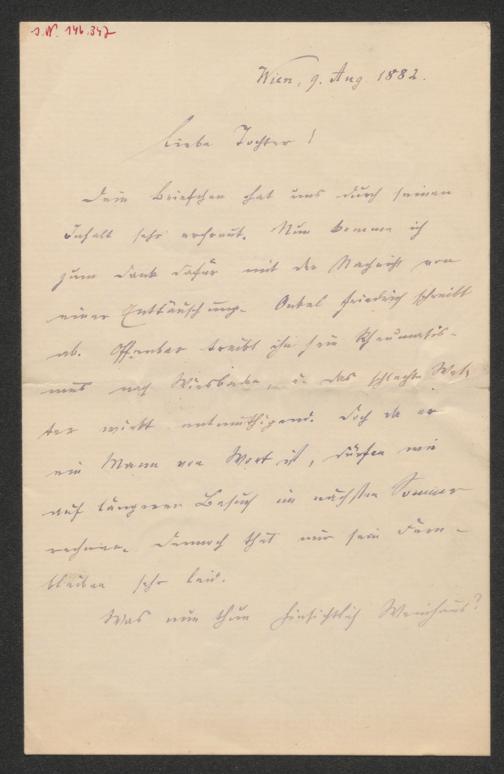 J.N. 146.347
Wien, 9. Aug 1882.
Liebe Tochter!
Dein Briefchen hat uns durch seinen
Inhalt sehr erfreut. Nun komme ich
zum Dank dafür mit der Nachricht von
einer Enttäuschung. Onkel Friedrich schreibt
ab. Offenbar treibt ihn sein Rheumatis-
mus nach Wiesbaden, u. das schlechte Wet-
ter wirkt entmuthigend. Doch da er
ein Mann von Wort ist, dürfen wir
auf längeren Besuch im nächsten Sommer
rechnen. Dennoch thut mir sein Fern-
bleiben sehr leid.
Was nun thun hinsichtlich Weinhaus?